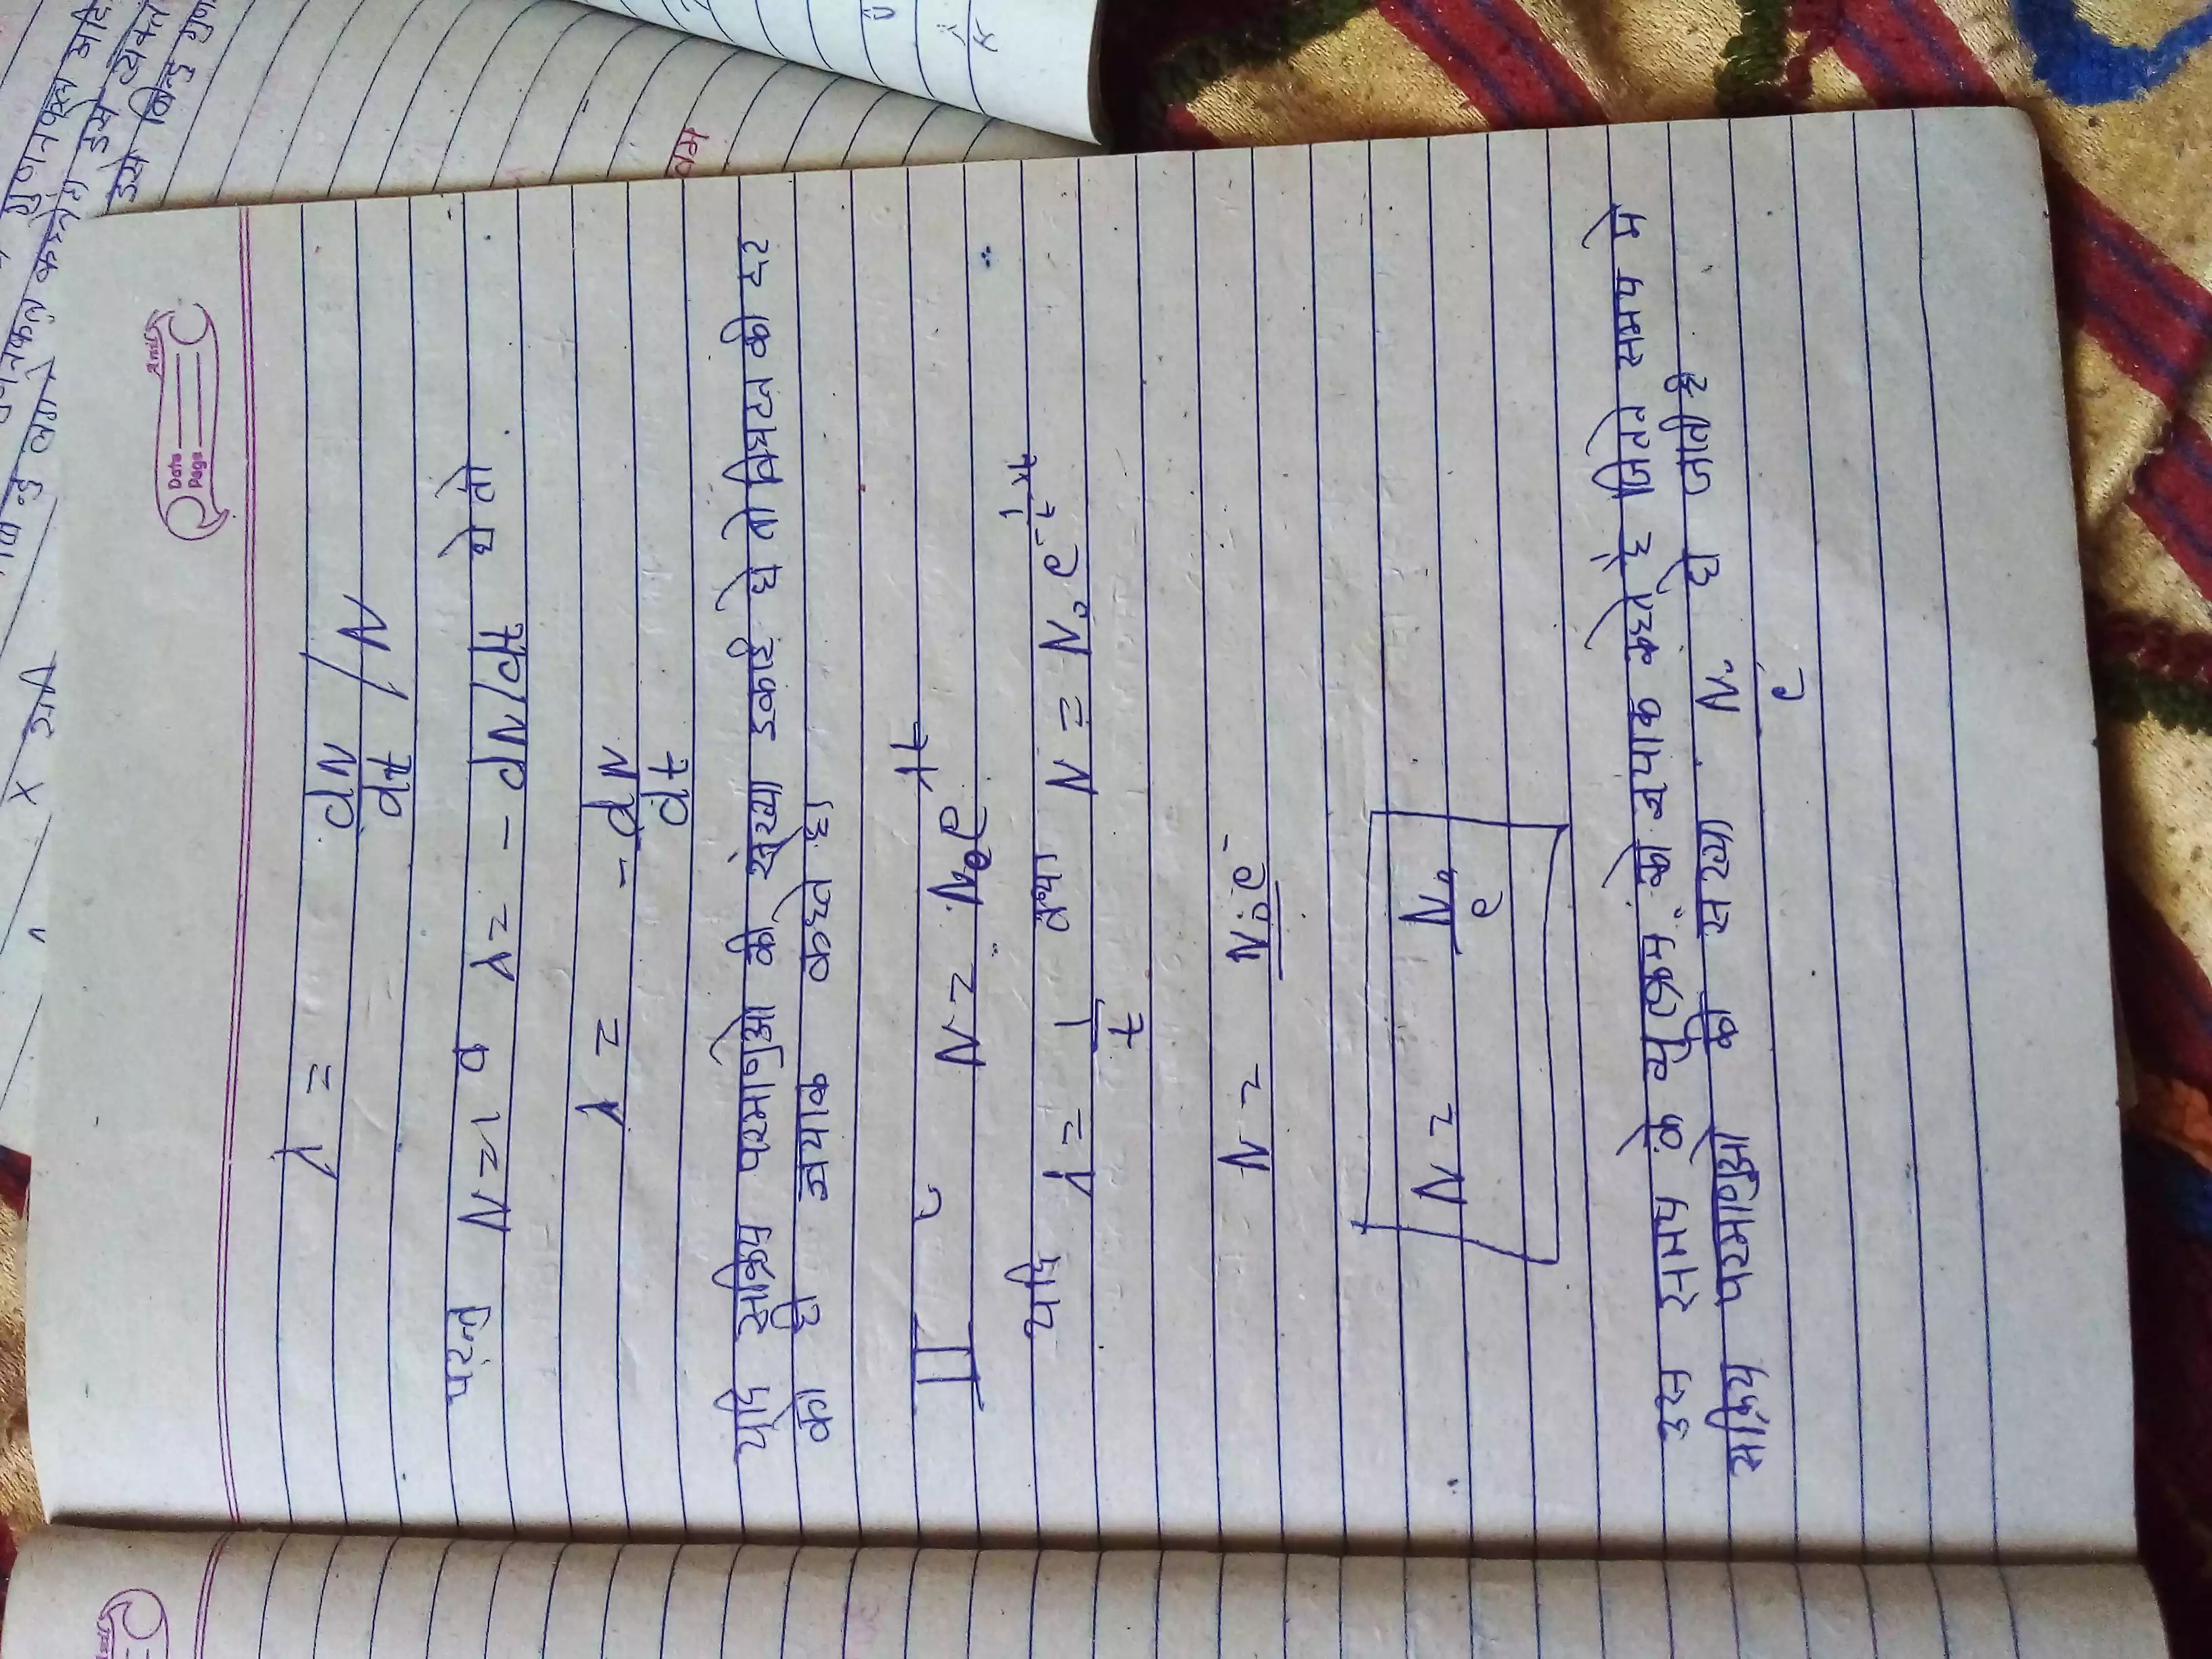 Date
Page
λ = dN/dt / N
परन्तु N=1 व λ= - dN/dt घे तो
λ = -dN/dt
यदि सक्रिय परमाणुओ की संख्या इकाई घे तो विघटन की दर
को ही क्षयांक कहते है।
II N = N₀e λt
यदि λ = 1/t तथा N = N₀ e^-1/t×t
N = N₀e⁻
N = N₀/e
उस समय के व्युत्क्रम को क्षयांक कहते है जितने समय मे
सक्रिय परमाणुओ की संख्या N₀/e हो जाती है
गुणनफल
इसे
बिन्दु